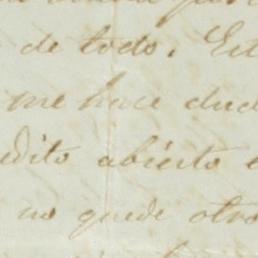 de todo. Est
me hace dud
dito abierto
no quede otro